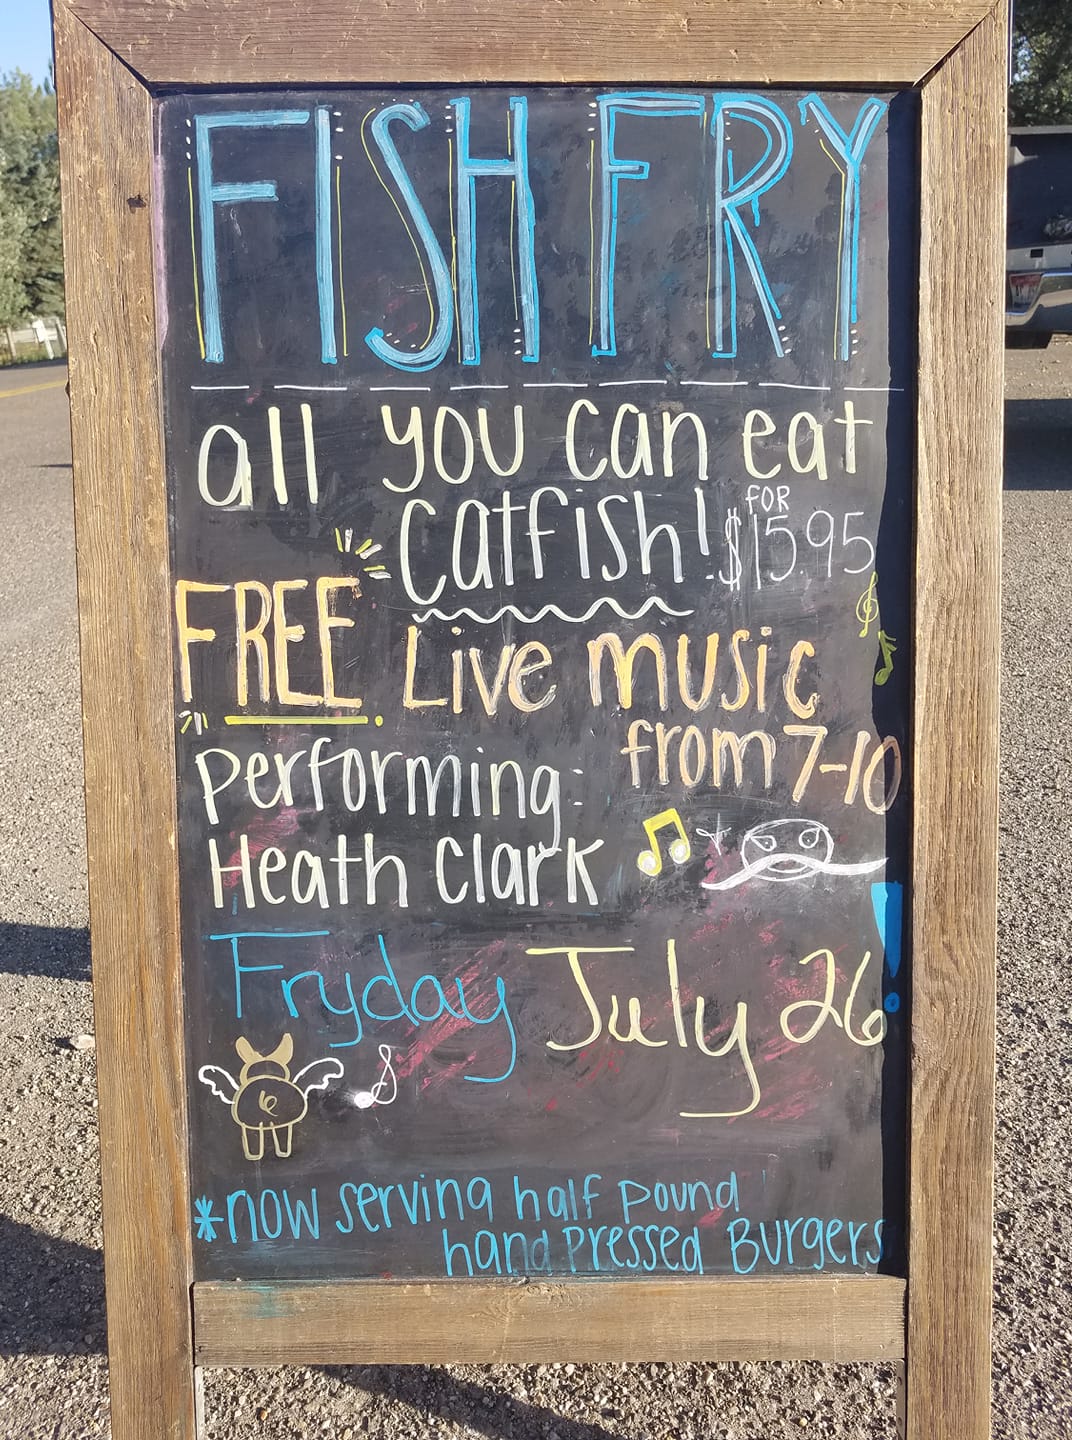 FISH FRY
all you can eat
catfish! FOR $15.95
FREE Live music
from 7-10
performing:
Heath Clark
Fryday July 26!
*now serving half pound
hand pressed Burgers